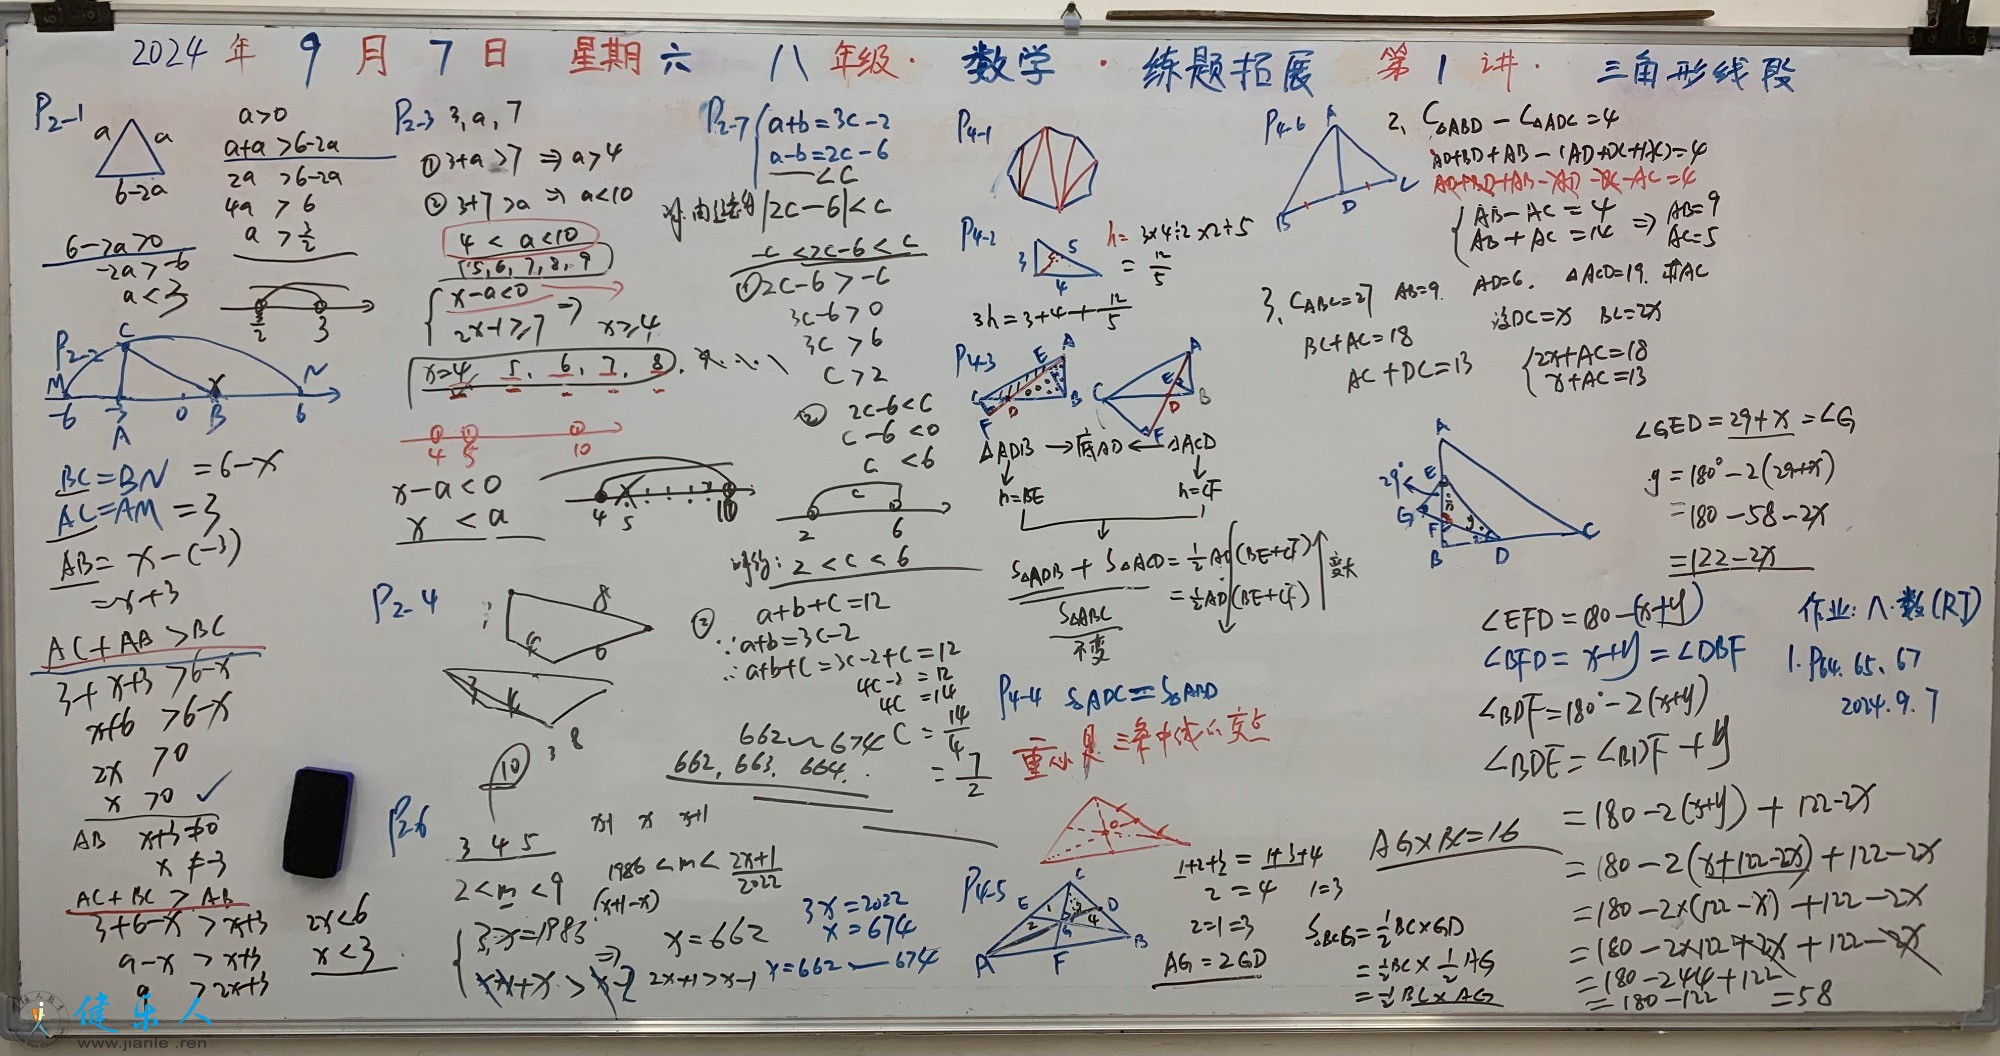 2024 年 9 月 7 日 星期六 八年级· 数学 · 练题拓展 第 1 讲· 三角形线段
P2-1
a a
6-2a
a>0
a+a >6-2a
2a >6-2a
4a > 6
a > 3/2
6-2a>0
-2a>-6
a<3
3/2 3
P2-2
C
M N
-6 -3 0 B 6
A
x
BC=BN =6-x
AC=AM =3
AB= x-(-3)
=x+3
AC+AB >BC
3+x+3 >6-x
x+6 >6-x
2x >0
x >0 ✓
AB x+3≠0
x ≠-3
AC+BC > AB
3+6-x >x+3
9-x > x+3
9 >2x+3
2x<6
x<3
P2-3 3, a, 7
①3+a>7 ⇒ a>4
②3+7>a ⇒ a<10
4 < a<10
5, 6, 7, 8, 9
x-a<0
2x-1≥7 ⇒ x≥4
x=4, 5, 6, 7, 8
4 5 10
x-a<0
x <a
4 5 10
P2-4
8
4 6
3 4
3 8
10
P2-6
3 4 5
2<m<9
x-1 x x+1
1986 <m< 2x+1/2022
(x+1-x)
3x=2022
x=674
x=662
2x+1>x-1
x=662 — 674
P2-7
a+b=3c-2
a-b=2c-6
<C
|2c-6|<c
-c<2c-6<c
①2c-6>-c
3c-6>0
3c >6
c>2
② 2c-6<c
c-6<0
c <6
c
2 6
2<c<6
② a+b+c=12
∵a+b=3c-2
∴a+b+c=3c-2+c=12
4c-2 =12
4c =14
c = 14/4
= 7/2
662~674
662, 663, 664.
P4-1
P4-2
3 5
4
h= 3×4÷2×2÷5
= 12/5
3h=3+4+12/5
P4-3
E A
C D B
F
A
C E
D B
F
△ADB → 底AD ← △ACD
h=BE h=CF
S△ADB + S△ACD=½AD(BE+CF)
=½AD(BE+CF)
变大
S△ABC
不变
P4-4 S△ADC=S△ABD
重心是三条中线的交点
O
P4-5
C
E 1 3 D
2 G 4
A F B
1+2+3 = 1+3+4
2=4 1=3
2=1=3
AG=2GD
AG×BC=16
S△BCG=½BC×GD
=½BC×½AG
=¼BC×AG
P4-6
A
B D C
2. C△ABD - C△ADC=4
AD+BD+AB-(AD+DC+AC)=4
AD+BD+AB-AD-DC-AC=4
AB-AC=4
AB+AC=14 ⇒ AB=9
AC=5
3. CABC=27 AB=9. AD=6. △ACD=19. 求AC
BC+AC=18 设DC=x BC=2x
AC+DC=13
2x+AC=18
x+AC=13
A
29° E
G x y
F
B D C
∠GED=29+x=∠G
y=180°-2(29+x)
=180-58-2x
=122-2x
∠EFD=180-(x+y)
∠BFD= x+y=∠DBF
∠BDF=180°-2(x+y)
∠BDE=∠BDF+y
=180-2(x+y)+122-2x
=180-2(x+122-2x)+122-2x
=180-2×(122-x)+122-2x
=180-2×122+2x+122-2x
=180-244+122
=180-122 =58
作业: 八·数(RJ)
1. P64. 65. 67
2024.9.7
健乐人
www.jianle.ren